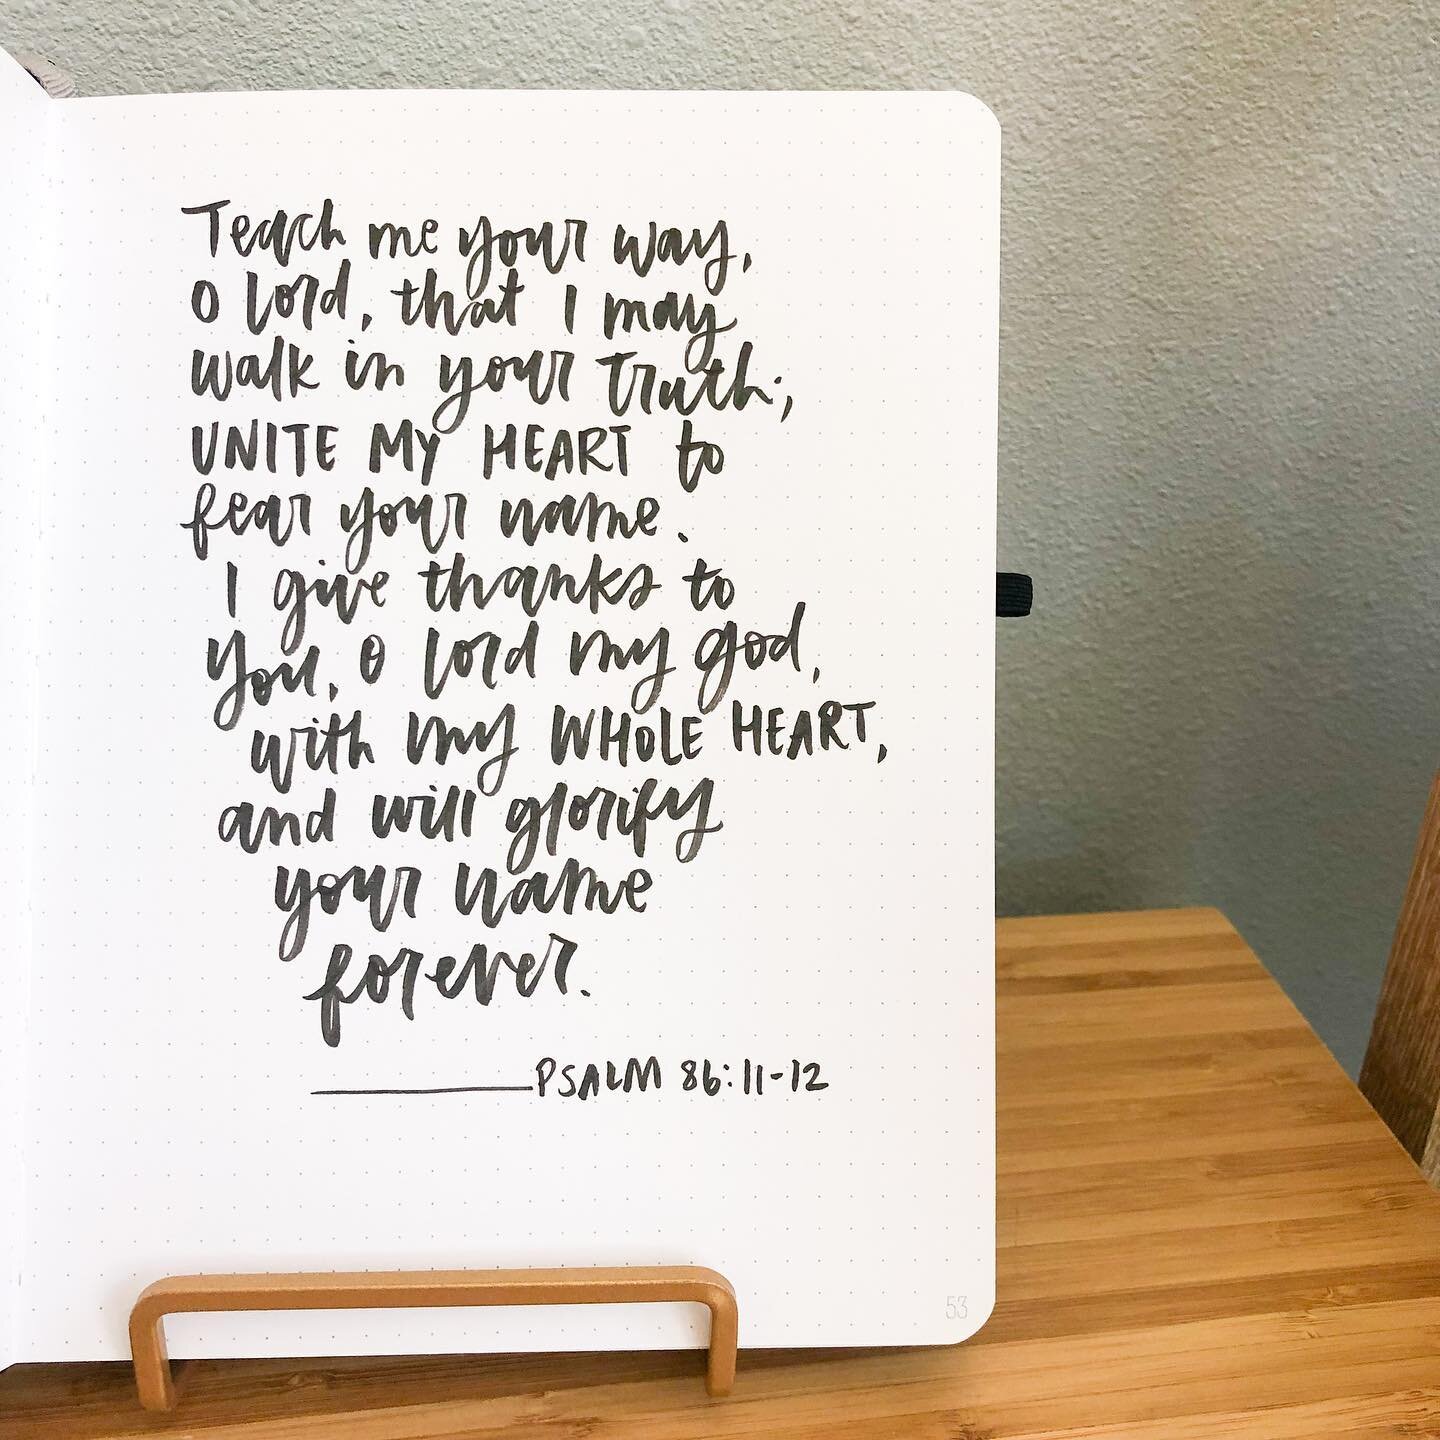 Teach me your way,
O Lord, that I may
walk in your truth;
UNITE MY HEART to
fear your name.
I give thanks to
you, O Lord my god,
with my WHOLE HEART,
and will glorify
your name
forever.
PSALM 86:11-12
53